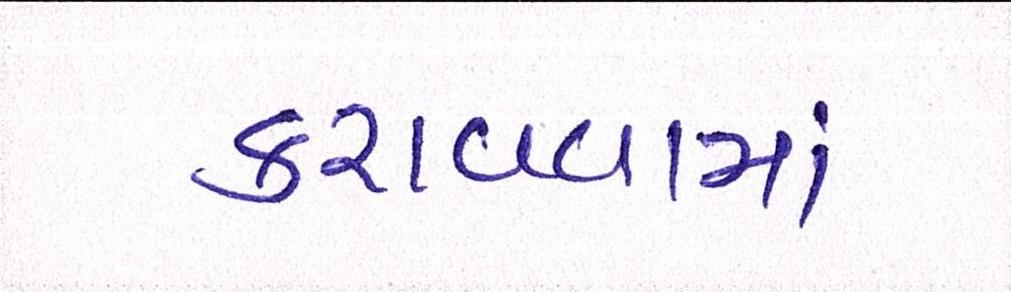 કરાવવામાં